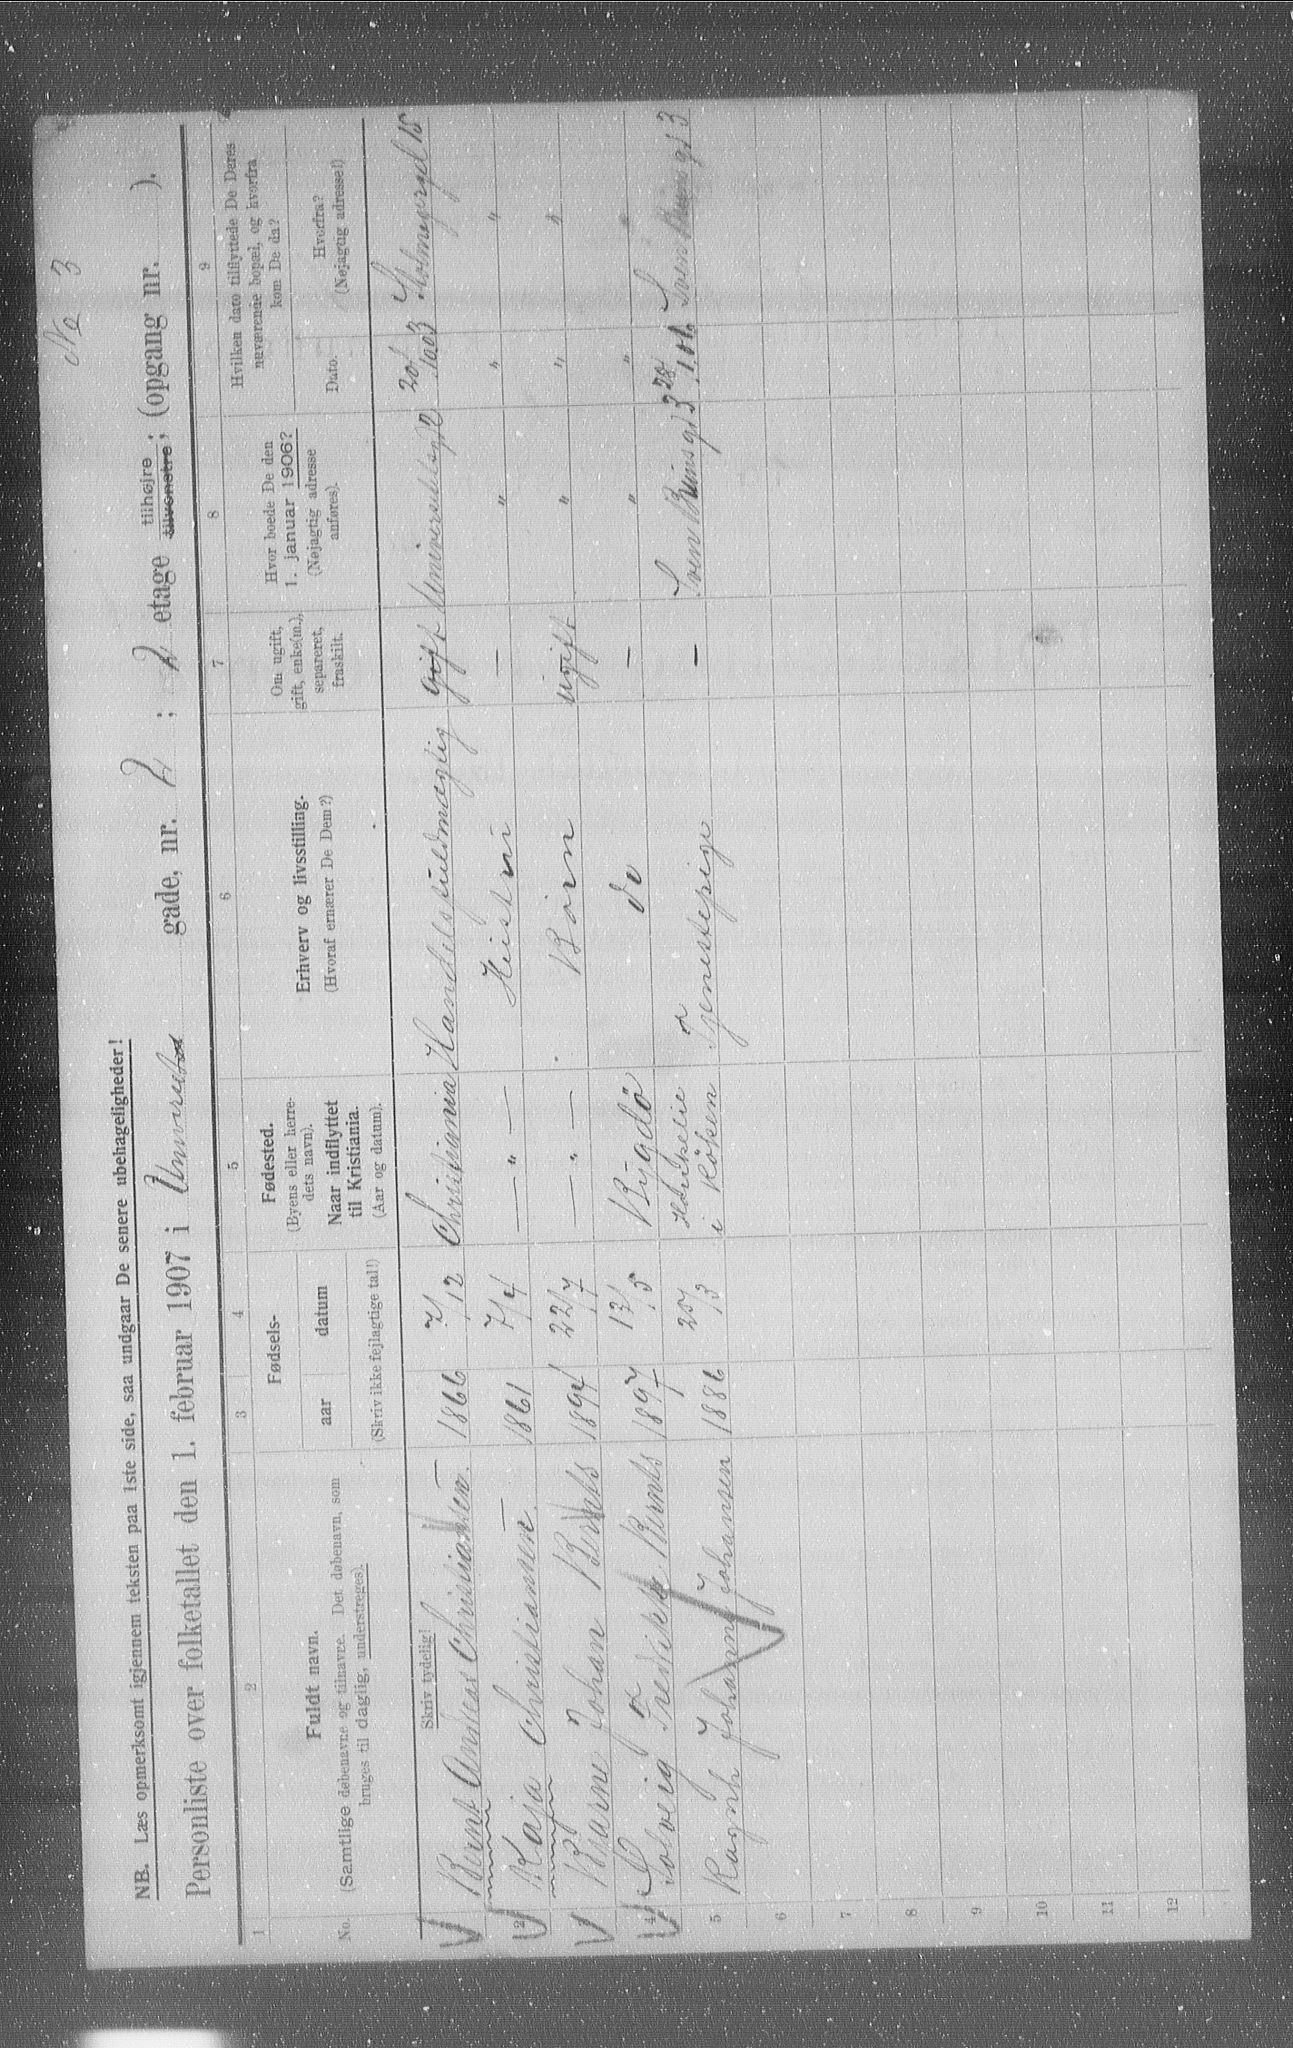 No 3
NB. Læs opmerksomt igjennem teksten paa 1ste side, saa undgaar De senere ubehageligheder!
Personliste over folketallet den 1. februar 1907 i Universitets gade, nr. 2; 2 etage tilhøjre; tilvenstre; (opgang nr. ).
1 2 3 4 5 6 7 8 9
No.
Fuldt navn.
(Samtlige døbenavne og tilnavne. Det døbenavn, som
bruges til daglig, understreges).
Fødsels-
aar datum
(Skriv ikke fejlagtige tal!)
Fødested.
(Byens eller herre-
dets navn).
Naar indflyttet
til Kristiania.
(Aar og datum).
Erhverv og livsstilling.
(Hvoraf ernærer De Dem?)
Om ugift,
gift, enke(m.),
separeret,
fraskilt.
Hvor boede De den
1. januar 1906?
(Nøjagtig adresse
anføres).
Hvilken dato tilflyttede De Deres
nuværende bopæl, og hvorfra
kom De da?
Dato.
Hvorfra?
(Nøjagtig adresse!)
Skriv tydelig!
Bernt Andreas Christiansen. 1866 7/12 Christiania Handelsfuldmægtig gift Universitetsgt 2 20/10 03 Holmensgd 15
2 Kaja Christiansen. 1861 7/4 — " — Hustru — " " "
Bjarne Johan Bernts 1894 22/7 — " — Barn ugift " " "
4 Solveig Fredrikke Bernts 1897 13/5 Bygdö do — " " "
5 Ragnh Johanne Johansen 1886 25/3 i Röken Tjenestepige — Sven Bruns gd 3 28/1 06 Sven Bruns gd 3
6
7
8
9
10
11
12